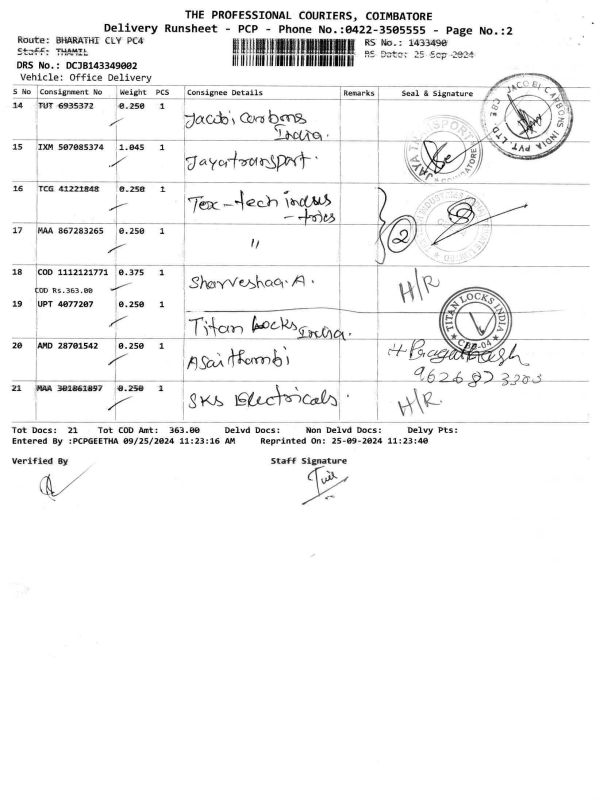 THE PROFESSIONAL COURIERS, COIMBATORE
Delivery Runsheet - PCP - Phone No.:0422-3505555 - Page No.:2
Route: BHARATHI CLY PC4 RS No.: 1433490
Staff: THAMIL RS Date: 25 Sep 2024
DRS No.: DCJB143349002
Vehicle: Office Delivery
S No Consignment No Weight PCS Consignee Details Remarks Seal & Signature
14 TUT 6935372 0.250 1 Jacobi Carbons
India. JACOBI CARBONS INDIA PVT. LTD. CBE
15 IXM 507085374 1.045 1 Jaya transport. JAYA TRANSPORT COIMBATORE
16 TCG 41221848 0.250 1 Tex-tech indus
-tries
17 MAA 867283265 0.250 1 " 2
18 COD 1112121771 0.375 1 Sharveshaa. A. H/R
COD Rs.363.00
19 UPT 4077207 0.250 1 Titan Locks India. TITAN LOCKS INDIA CBE-04
20 AMD 28701542 0.250 1 Asaithambi
21 MAA 301861897 0.250 1 SKS Electricals. H/R
Tot Docs: 21 Tot COD Amt: 363.00 Delvd Docs: Non Delvd Docs: Delvy Pts:
Entered By :PCPGEETHA 09/25/2024 11:23:16 AM Reprinted On: 25-09-2024 11:23:40
Verified By Staff Signature